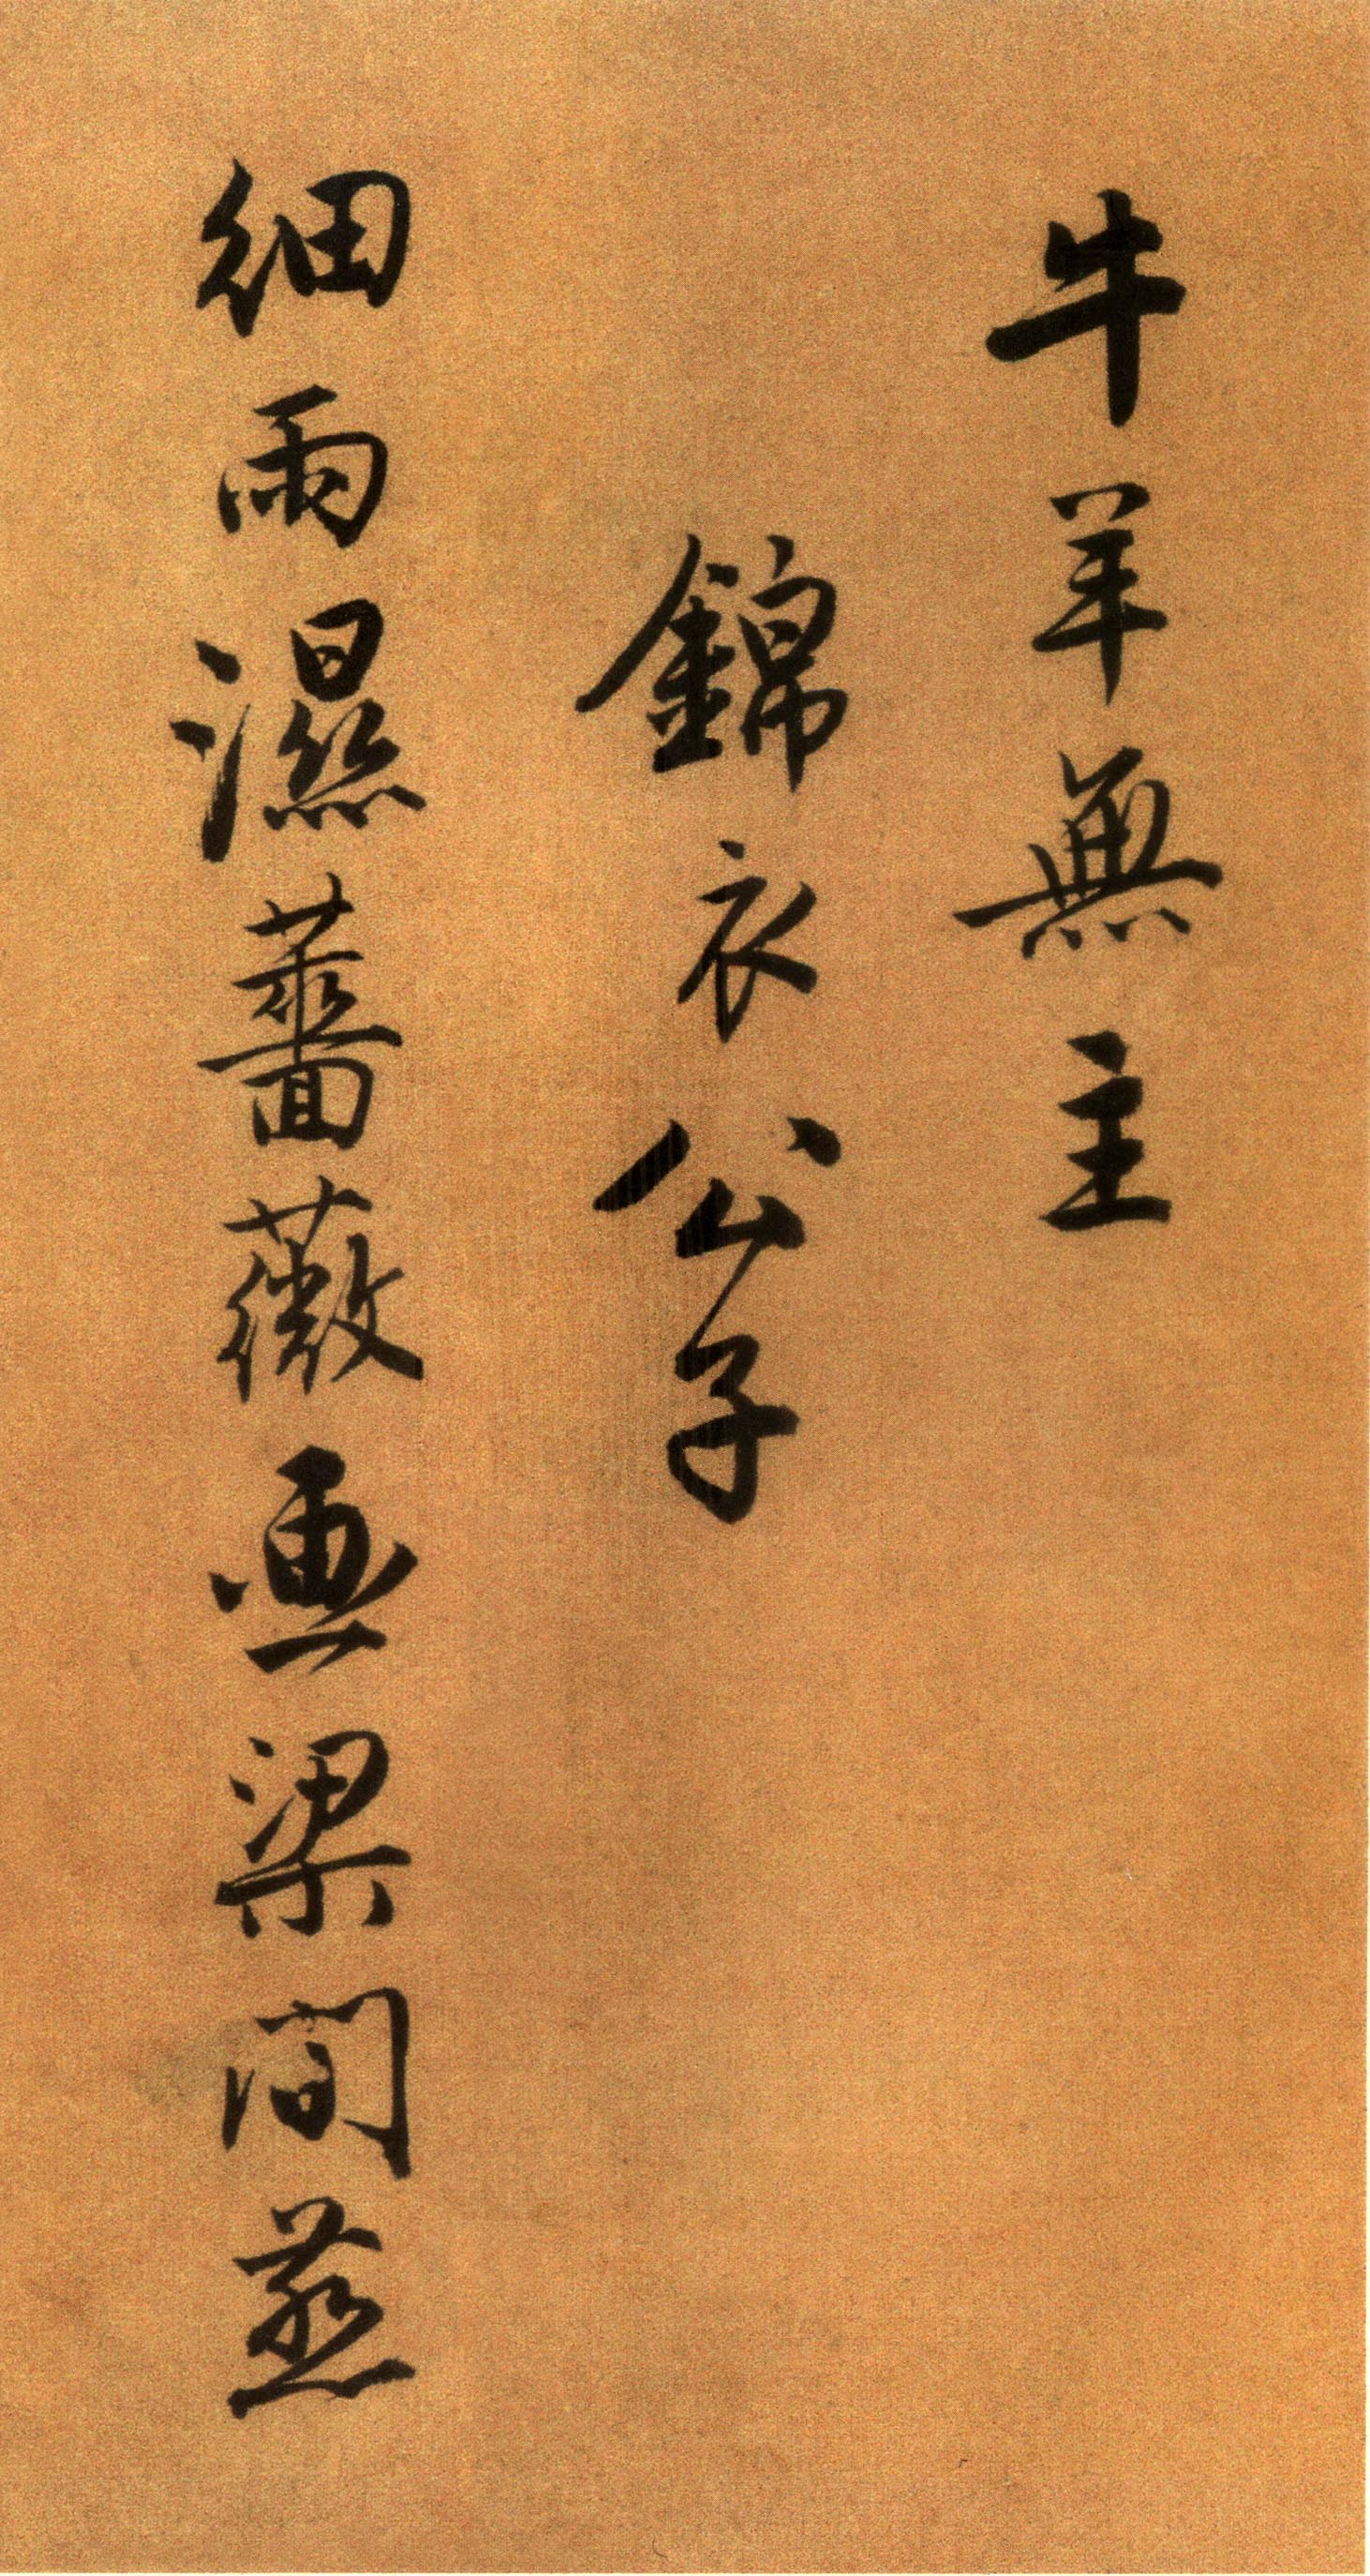 牛羊無主
錦衣公子
細雨濕薔薇畫梁間燕